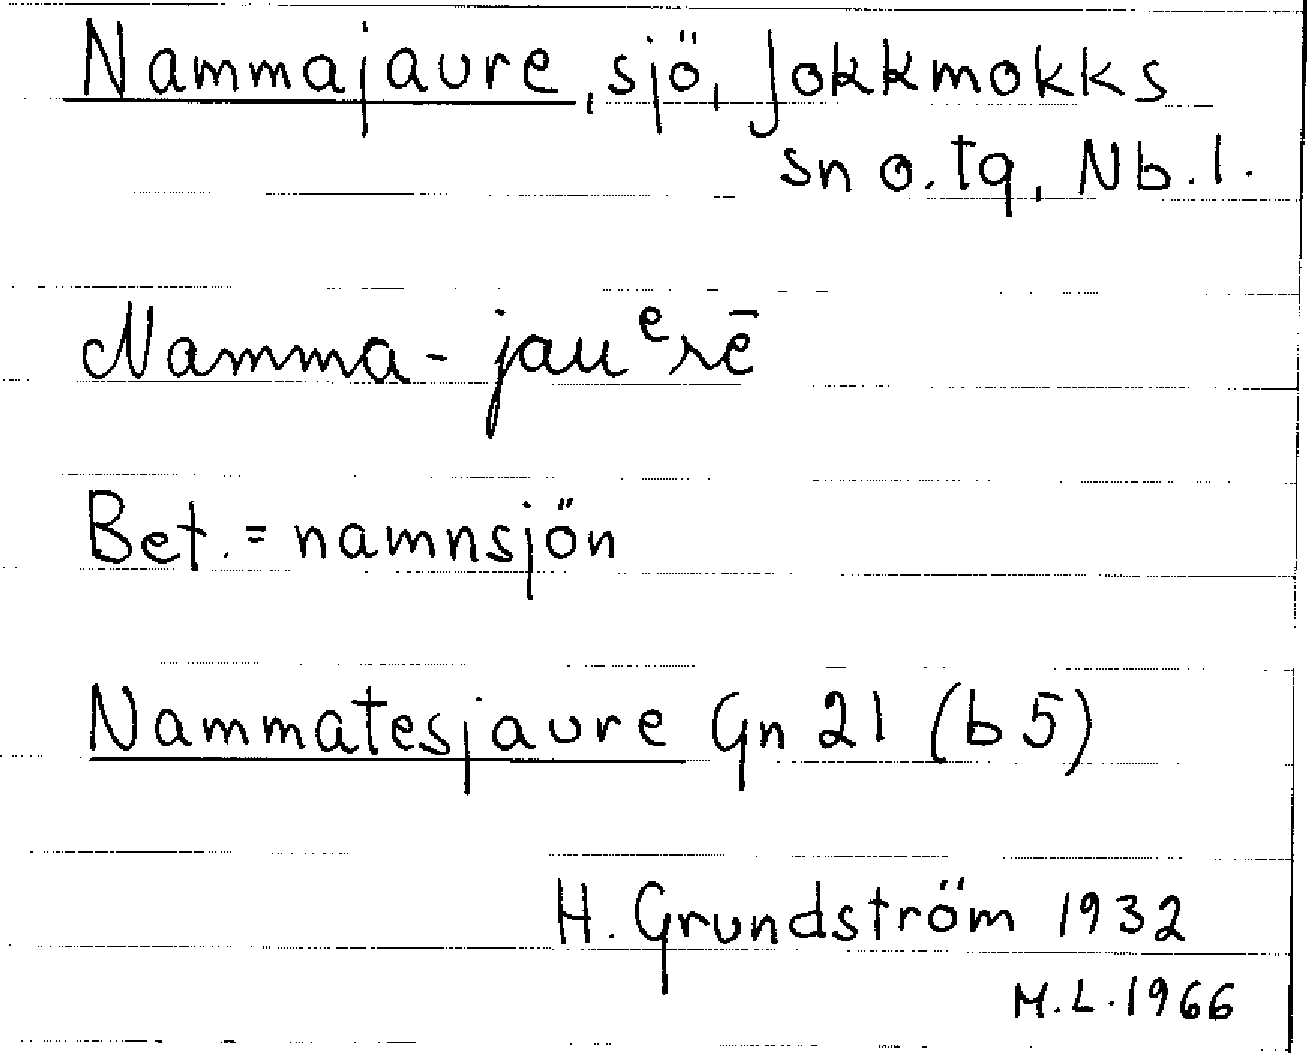 Nammajaure, sjö, Jokkmokks
sn o. tg, Nb. l.
Namma-jauᵉrē
Bet. = namnsjön
Nammatesjaure Gn 21 (b5)
H. Grundström 1932
M.L. 1966